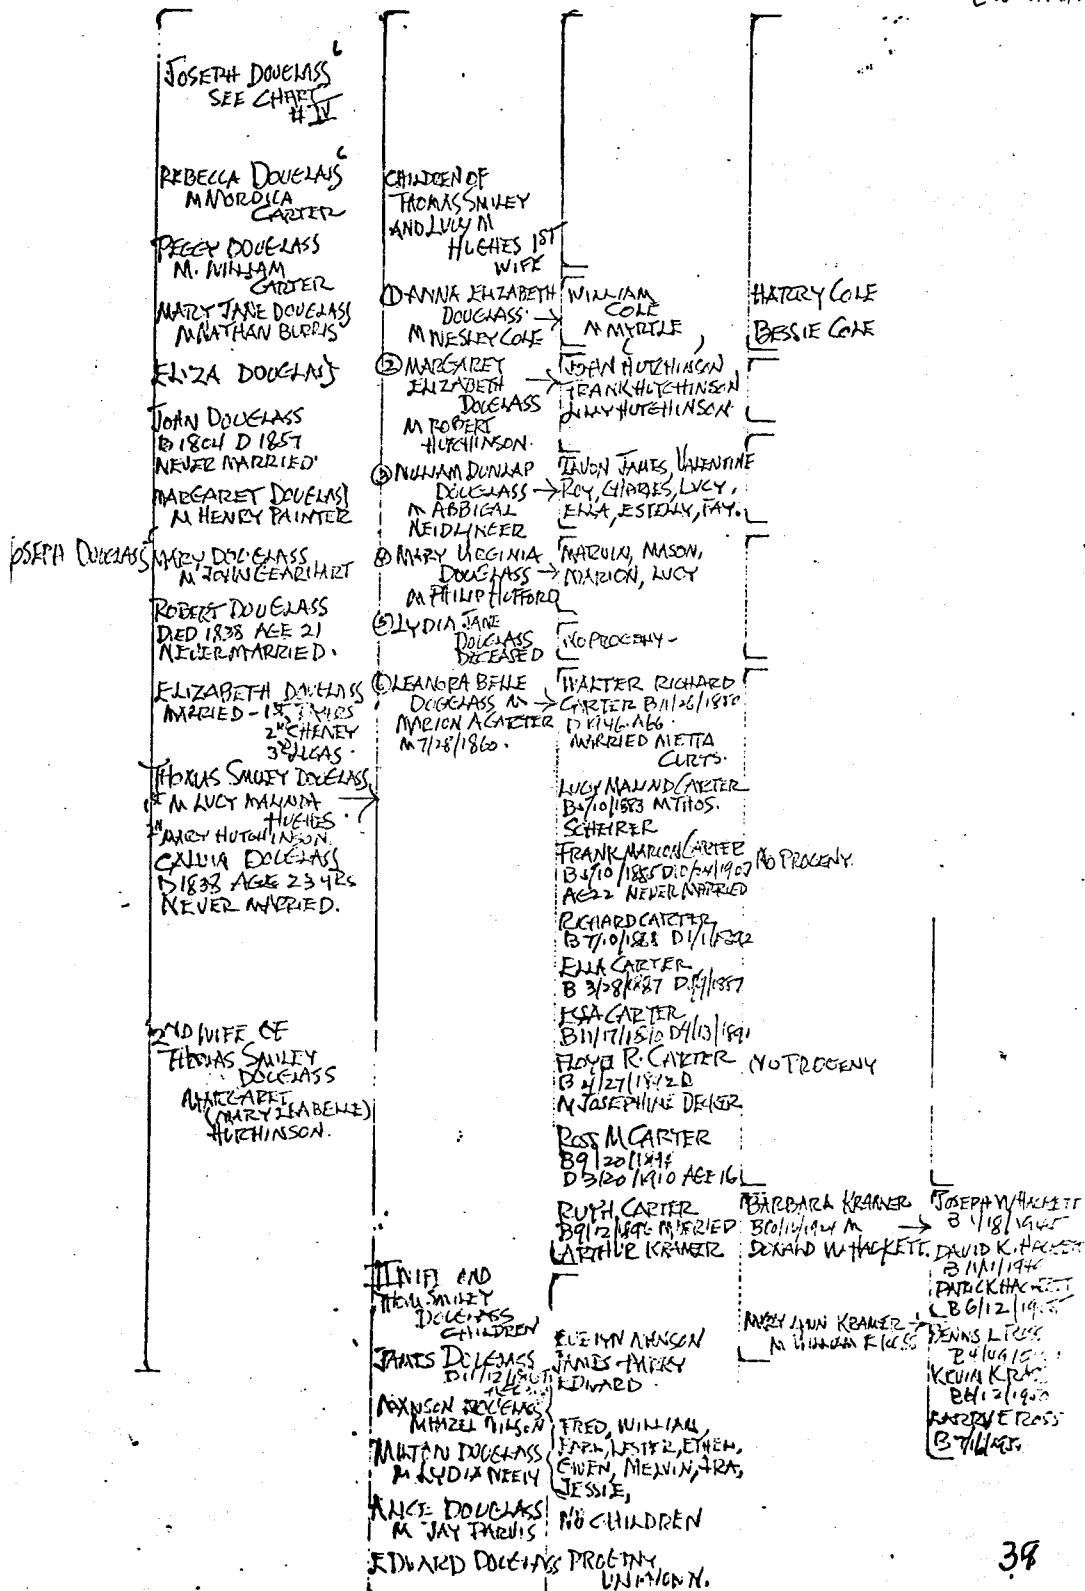 JOSEPH DOUGLASS 6
SEE CHART
# IV
REBECCA DOUGLASS 6
M MORDICA
CARTER
PEGGY DOUGLASS
M. WILLIAM
CARTER
MARY JANE DOUGLASS
M NATHAN BURRIS
ELIZA DOUGLASS
JOHN DOUGLASS
B 1804 D 1857
NEVER MARRIED
MARGARET DOUGLASS
M HENRY PAINTER
JOSEPH DOUGLASS
MARY DOUGLASS
M JOHN GEARHART
ROBERT DOUGLASS
DIED 1838 AGE 21
NEVER MARRIED.
ELIZABETH DOUGLASS
MARRIED - 1ST
2ND CHENEY
3RD
THOMAS SMILEY DOUGLASS
1ST M LUCY MALINDA
HUGHES
2ND MARY HUTCHINSON
CALVIN DOUGLASS
D 1838 AGE 23 YRS
NEVER MARRIED.
2ND WIFE OF
THOMAS SMILEY
DOUGLASS
MARGARET
(MARY ISABELLE)
HUTCHINSON.
CHILDREN OF
THOMAS SMILEY
AND LUCY M
HUGHES 1ST
WIFE
① ANNA ELIZABETH
DOUGLASS
M WESLEY COLE
② MARGARET
ELIZABETH
DOUGLASS
M ROBERT
HUTCHINSON.
③ WILLIAM DUNLAP
DOUGLASS →
M ABBIGAL
NEIDLINGER
④ MARY VIRGINIA
DOUGLASS →
M PHILIP HUFFORD
⑤ LYDIA JANE
DOUGLASS
DECEASED
⑥ LEANORA BELLE
DOUGLASS M →
MARION A CARTER
M 7/28/1860.
II WIFE AND
THOM. SMILEY
DOUGLASS
CHILDREN
JAMES DOUGLASS
MANSON DOUGLASS
M HAZEL WILSON
MILTON DOUGLASS
M LYDIA NEELY
ALICE DOUGLASS
M JAY PARVIS
EDWARD DOUGLASS
WILLIAM
COLE
M MYRTLE
( )
JOHN HUTCHINSON
FRANK HUTCHINSON
LILLY HUTCHINSON
JAMES, VALENTINE
ROY, CHARLES, LUCY,
ELLA, ESTELLY, FAY.
MARVIN, MASON,
MARION, LUCY
NO PROGENY -
WALTER RICHARD
CARTER B 11/26/1880
MARRIED NETTA
CURTS.
LUCY MALIND CARTER
M THOS.
SCHEIRER
FRANK MARION CARTER
AGE 22 NEVER MARRIED
RICHARD CARTER
B 7/10/1888 D 1/1/1892
ELLA CARTER
B 3/28/1887
CARTER
FLOYD R. CARTER
B 4/27/1892 D
M JOSEPHINE DECKER
ROSS M CARTER
B 9/20/1894
D 3/20/1910 AGE 16
RUTH CARTER
MARRIED
ARTHUR KRAMER
EVELYN
JAMES HARRY
EDWARD
FRED, WILLIAM,
EARL, LESTER, ETHEL,
OWEN, MELVIN, IRA,
JESSIE,
NO CHILDREN
PROGENY
UNKNOWN.
HARRY COLE
BESSIE COLE
NO PROGENY.
NO PROGENY
BARBARA KRAMER
DONALD W HACKETT.
MARY ANN KRAMER →
M WILLIAM E ROSS
JOSEPH W HACKETT
B 1/18/1945
DAVID K. HACKETT
PATRICK HACKETT
DENNIS L ROSS
KEVIN K
LARRY E ROSS
38